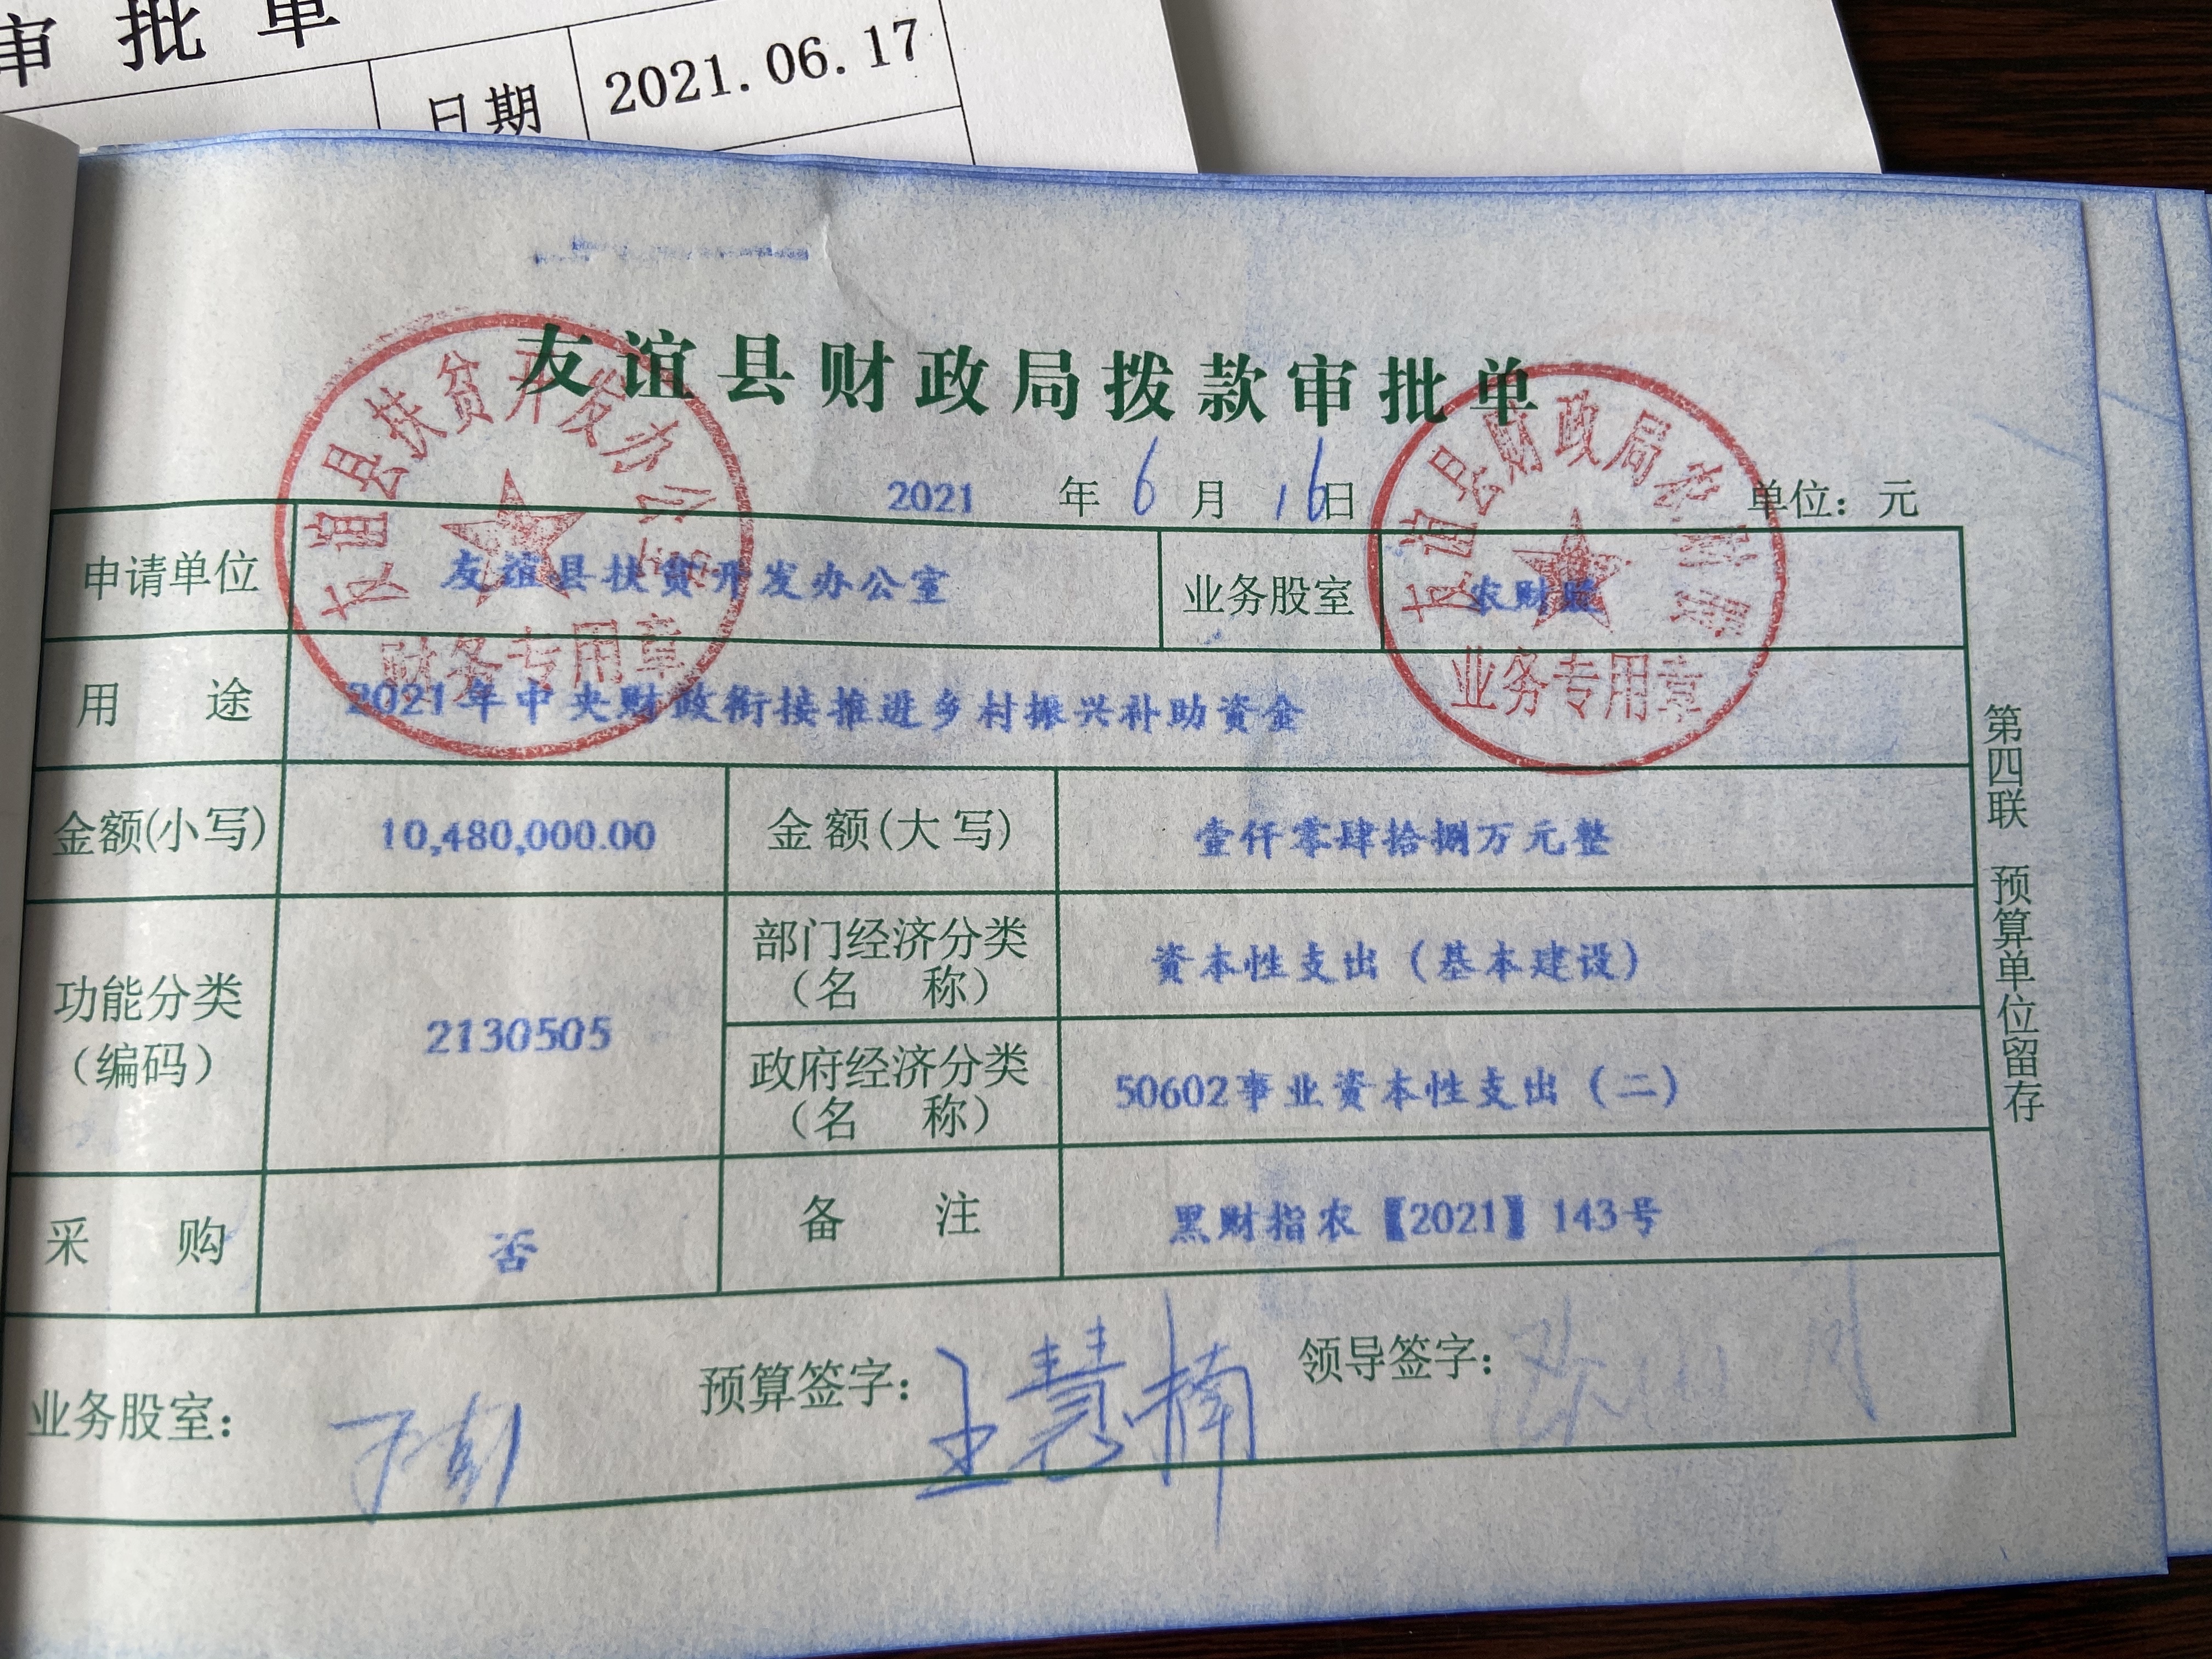 审批单
日期 2021.06.17
友谊县财政局拨款审批单
2021 年 6 月 16日 单位：元
申请单位 友谊县扶贫开发办公室 业务股室 农财股
用途 2021年中央财政衔接推进乡村振兴补助资金
金额(小写) 10,480,000.00 金额(大写) 壹仟零肆拾捌万元整
功能分类（编码） 2130505 部门经济分类（名称） 资本性支出（基本建设）
政府经济分类（名称） 50602事业资本性支出（二）
采购 否 备注 黑财指农【2021】143号
业务股室： 预算签字：王慧楠 领导签字：
第四联 预算单位留存
友谊县扶贫开发办公室
财务专用章
友谊县财政局农财股
业务专用章